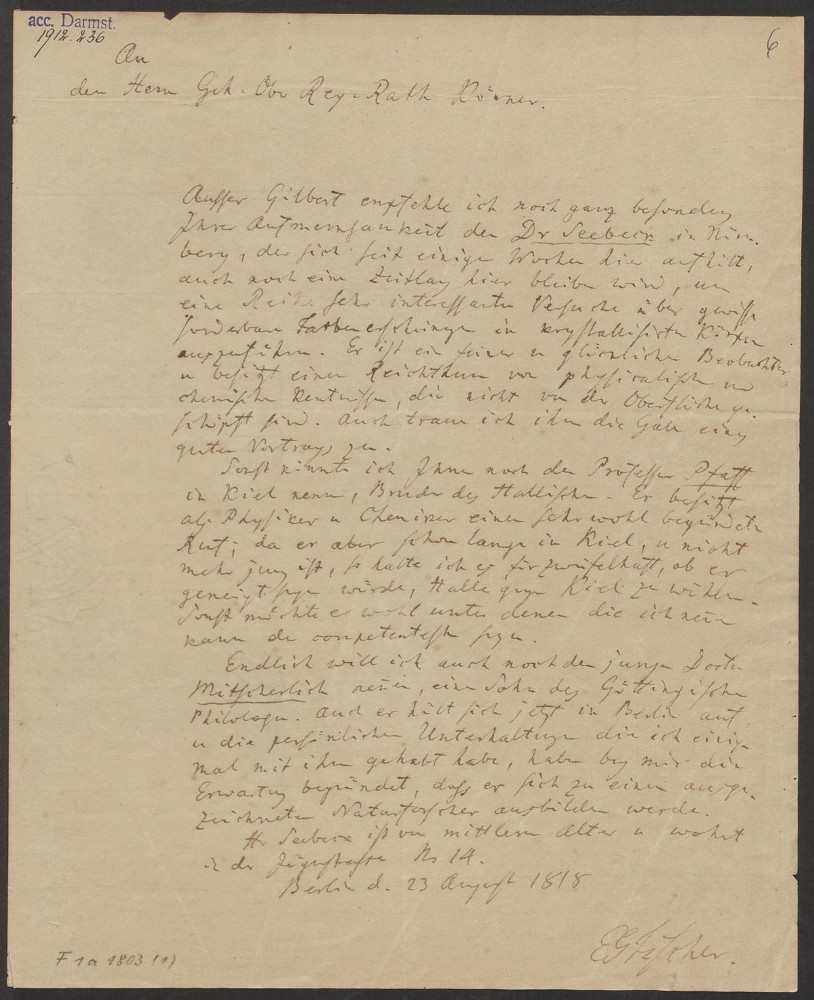 acc. Darmst.
1912.236
6
An
den Herrn Geh. Ober Reg. Rath Körner.
Ausser Gilbert empfehle ich noch ganz besonders
Ihrer Aufmerksamkeit den Dr Seebeck in Nürn-
berg, der sich seit einigen Wochen hier aufhält,
auch noch eine Zeitlang hier bleiben wird, um
eine Reihe sehr interessanter Versuche über gewisse
sonderbare Farbenerscheinungen in krystallisirten Körpern
auszuführen. Er ist ein feiner u glücklicher Beobachter,
u besitzt einen Reichthum von physicalischen und
chemischen Kentnissen, die nicht von der Oberfläche ge-
schöpft sind. Auch traue ich ihm die Gabe eines
guten Vortrags zu.
Sonst könnte ich Ihnen noch den Professor Pfaff
in Kiel nennen, Bruder des Hallischen. Er besitzt
als Physiker u Chemiker einen sehr wohl begründeten
Ruf; da er aber schon lange in Kiel, u nicht
mehr jung ist, so halte ich es für zweifelhaft, ob er
geneigt seyn würde, Halle gegen Kiel zu wählen.
Sonst möchte er wohl unter denen die ich nennen
kann der competenteste seyn.
Endlich will ich auch noch den jungen Doctor
Mitscherlich nennen, einen Sohn des Göttingischen
Philologen. Auch er hält sich jetzt in Berlin auf,
u die persönlichen Unterhaltungen die ich einige
mal mit ihm gehabt habe, haben bey mir die
Erwartung begründet, dass er sich zu einem ausge-
zeichneten Naturforscher ausbilden werde.
Hr Seebeck ist von mittlerem Alter u wohnt
in der Jägerstrasse No 14.
Berlin d. 23 August 1818
EGFischer.
F 1a 1803 (1)